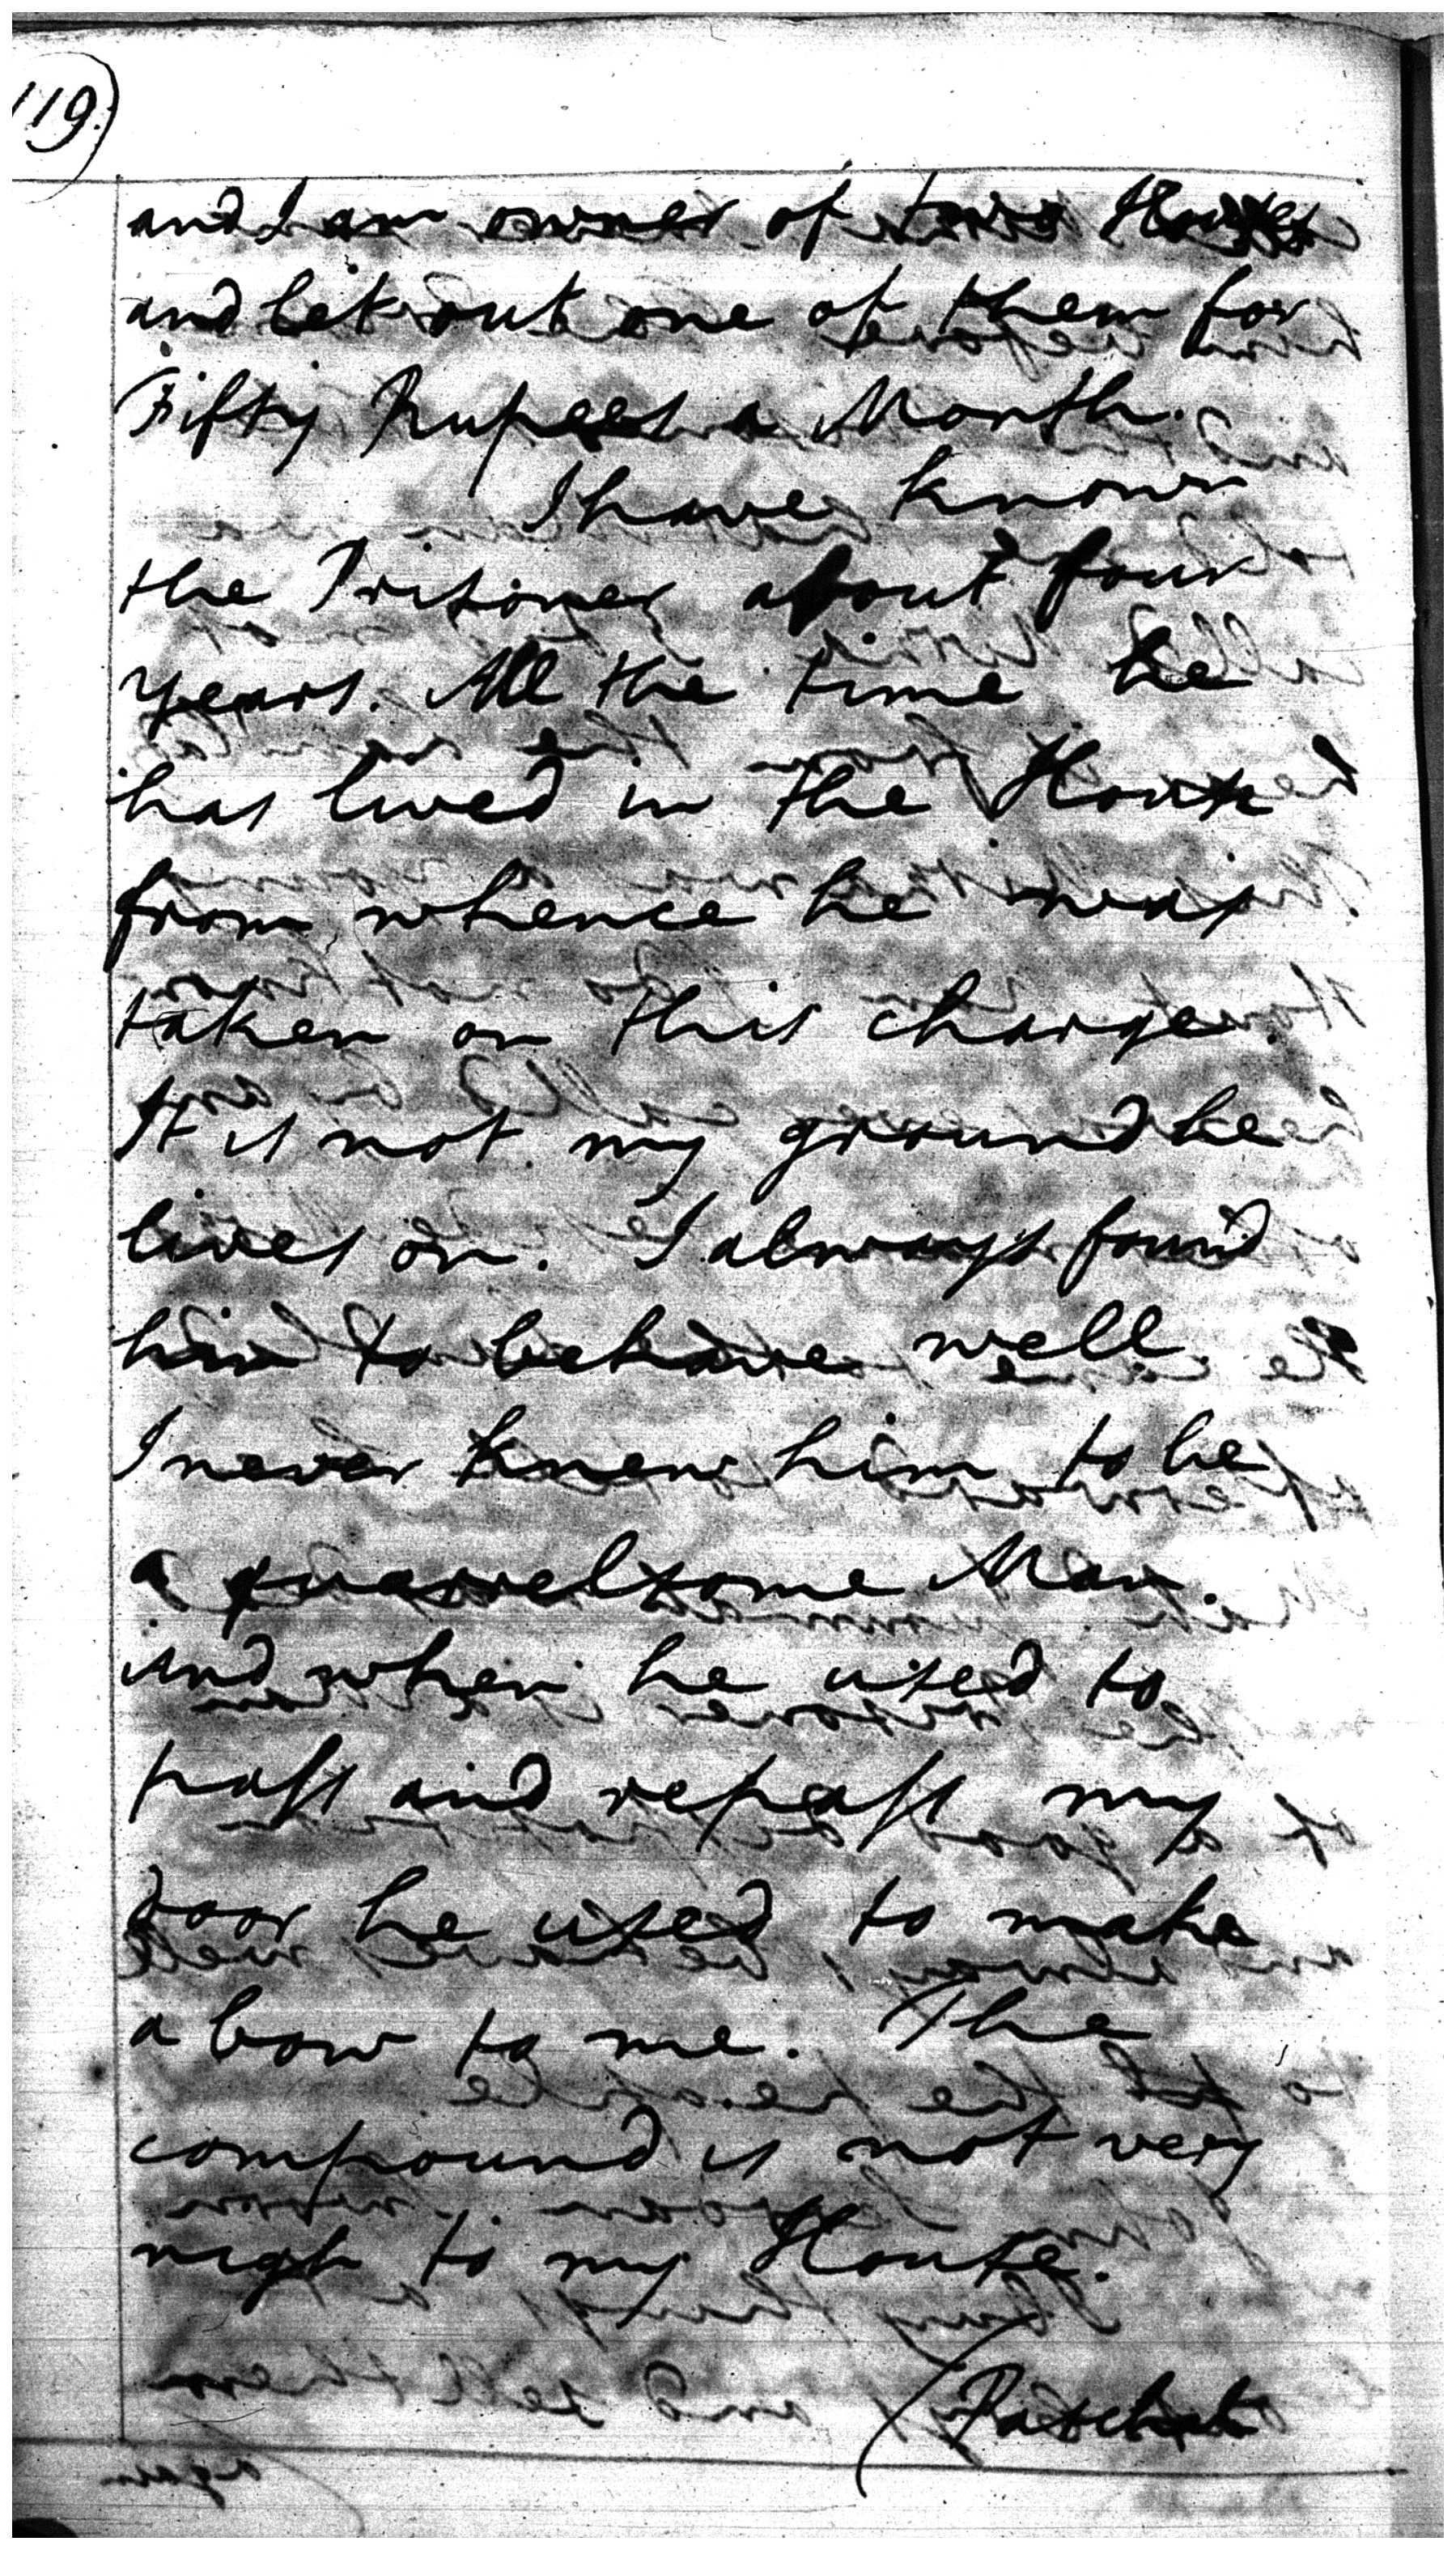 119.)
and I am owner of two Houses
and let out one of them for
Fifty Rupees a Month.
I have known
the Prisoner about four
years. All the time he
has lived in the House
from whence he was
taken on this charge.
It is not my ground he
lives on. I always found
him to behave well
I never knew him to be
a quarrelsome Man.
And when he used to
pass and repass my
door he used to make
a bow to me. The
compound is not very
nigh to my House.